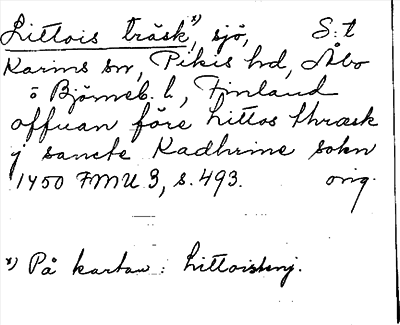 Littois träsk,*) sjö, S:t
Karins sn, Pikis hd, Åbo
o Björneb. l., Finland
offuan före Littos thræsk
j sancte Kadhrine sokn
1450 FMU 3, s. 493. orig.
*) På kartan: Littoistenj.